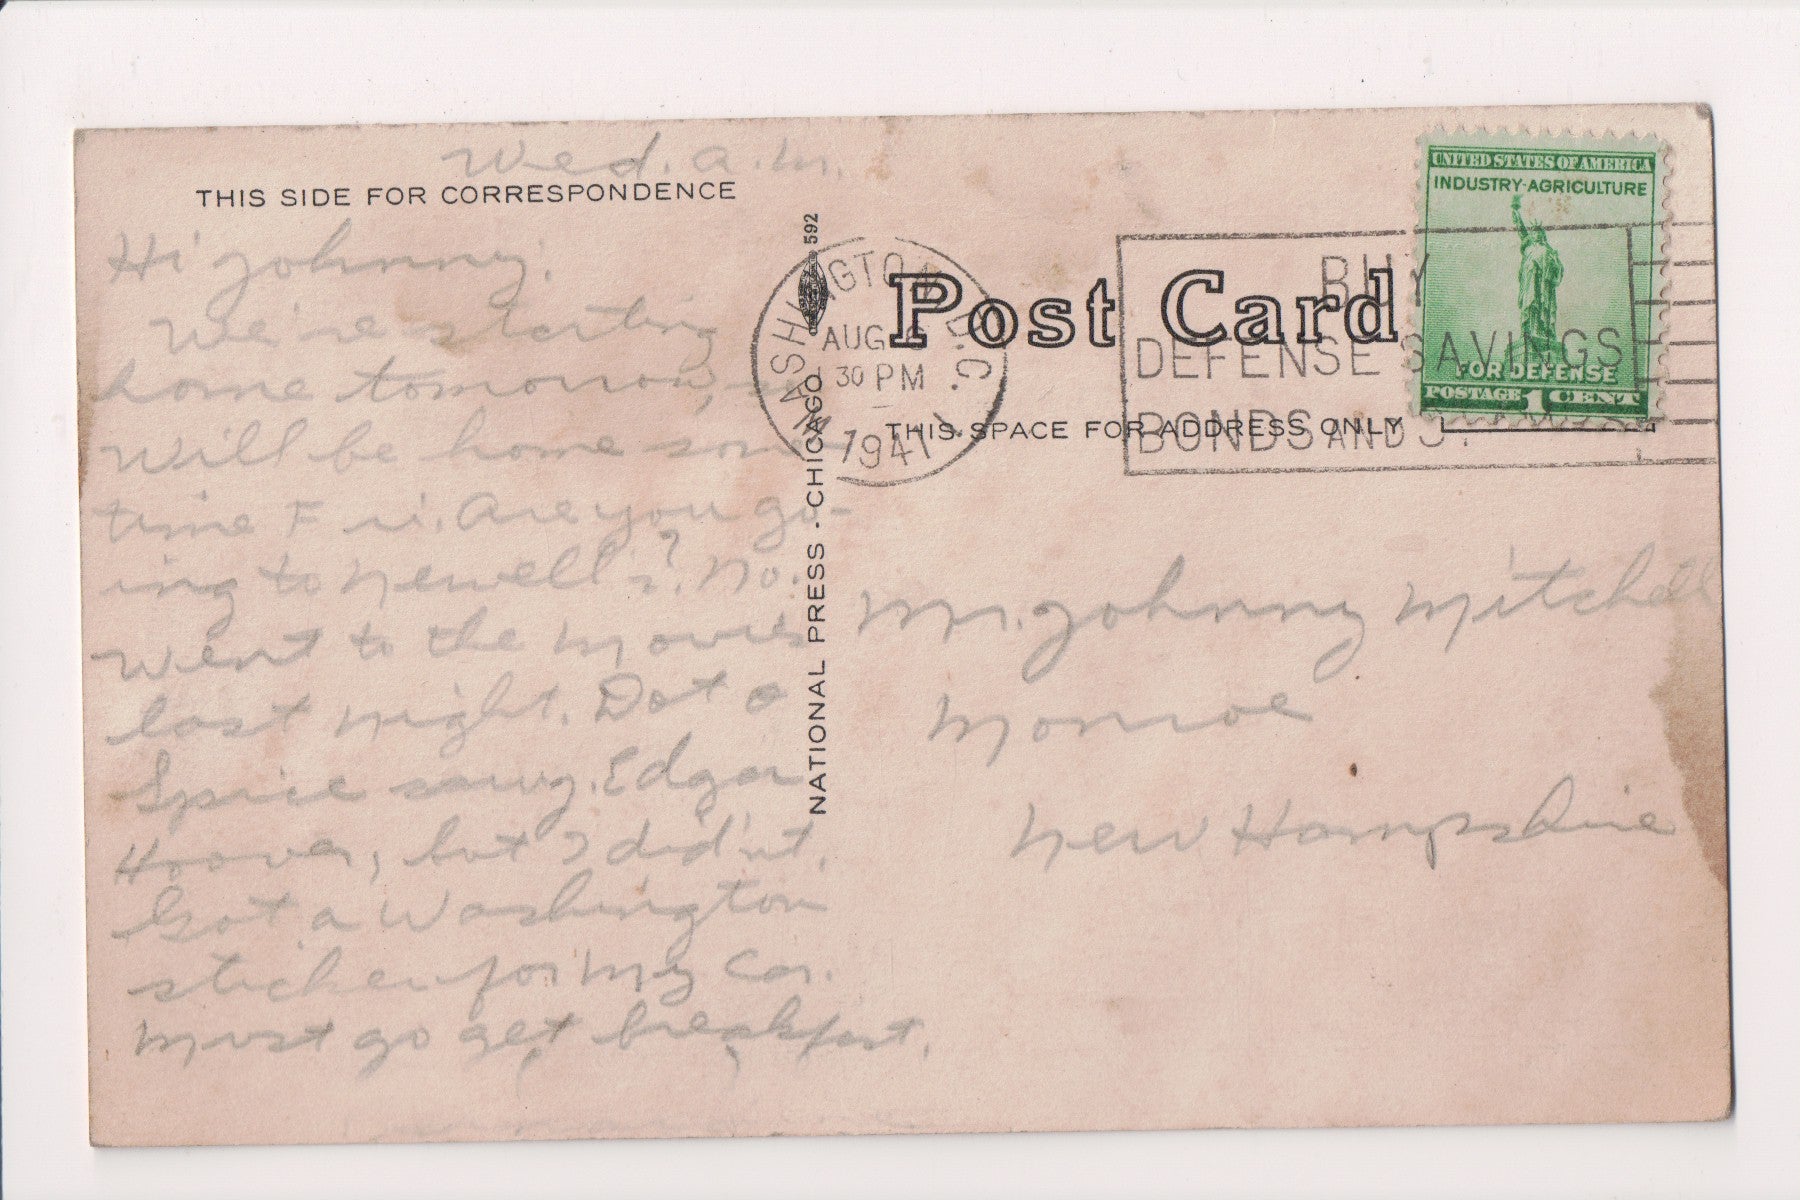 Wed. a.m.
THIS SIDE FOR CORRESPONDENCE
Hi Johnny:
We're starting
home tomorrow,
Will be home some-
time Fri. Are you go-
ing to Newell's? No.
Went to the movies
last night. Dot
saw Edgar
Hoover, but I didn't.
Got a Washington
sticker for my car.
Must go get breakfast.
592
NATIONAL PRESS - CHICAGO
WASHINGTON, D.C.
AUG 6
30 PM
1941
Post Card
THIS SPACE FOR ADDRESS ONLY
BUY
DEFENSE SAVINGS
BONDS AND
UNITED STATES OF AMERICA
INDUSTRY-AGRICULTURE
FOR DEFENSE
POSTAGE 1 CENT
Mr. Johnny Mitchell
Monroe
New Hampshire